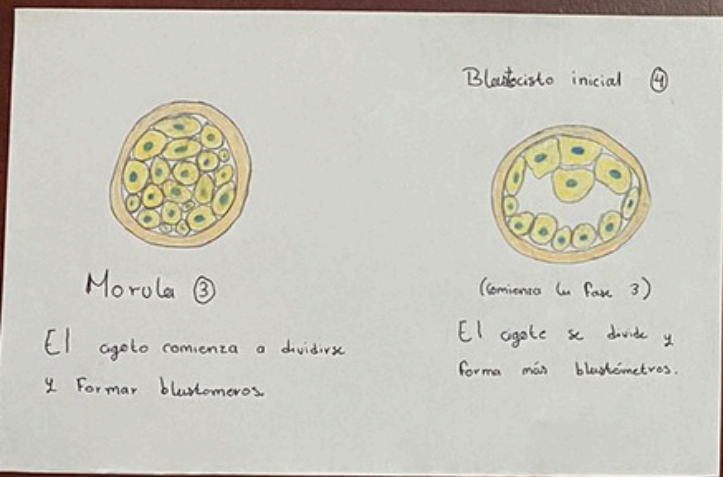 Morula ③
El cigoto comienza a dividirse
y Formar blastomeros
Blastocisto inicial ④
(Comienza la fase 3)
El cigoto se divide y
forma más blastómetros.